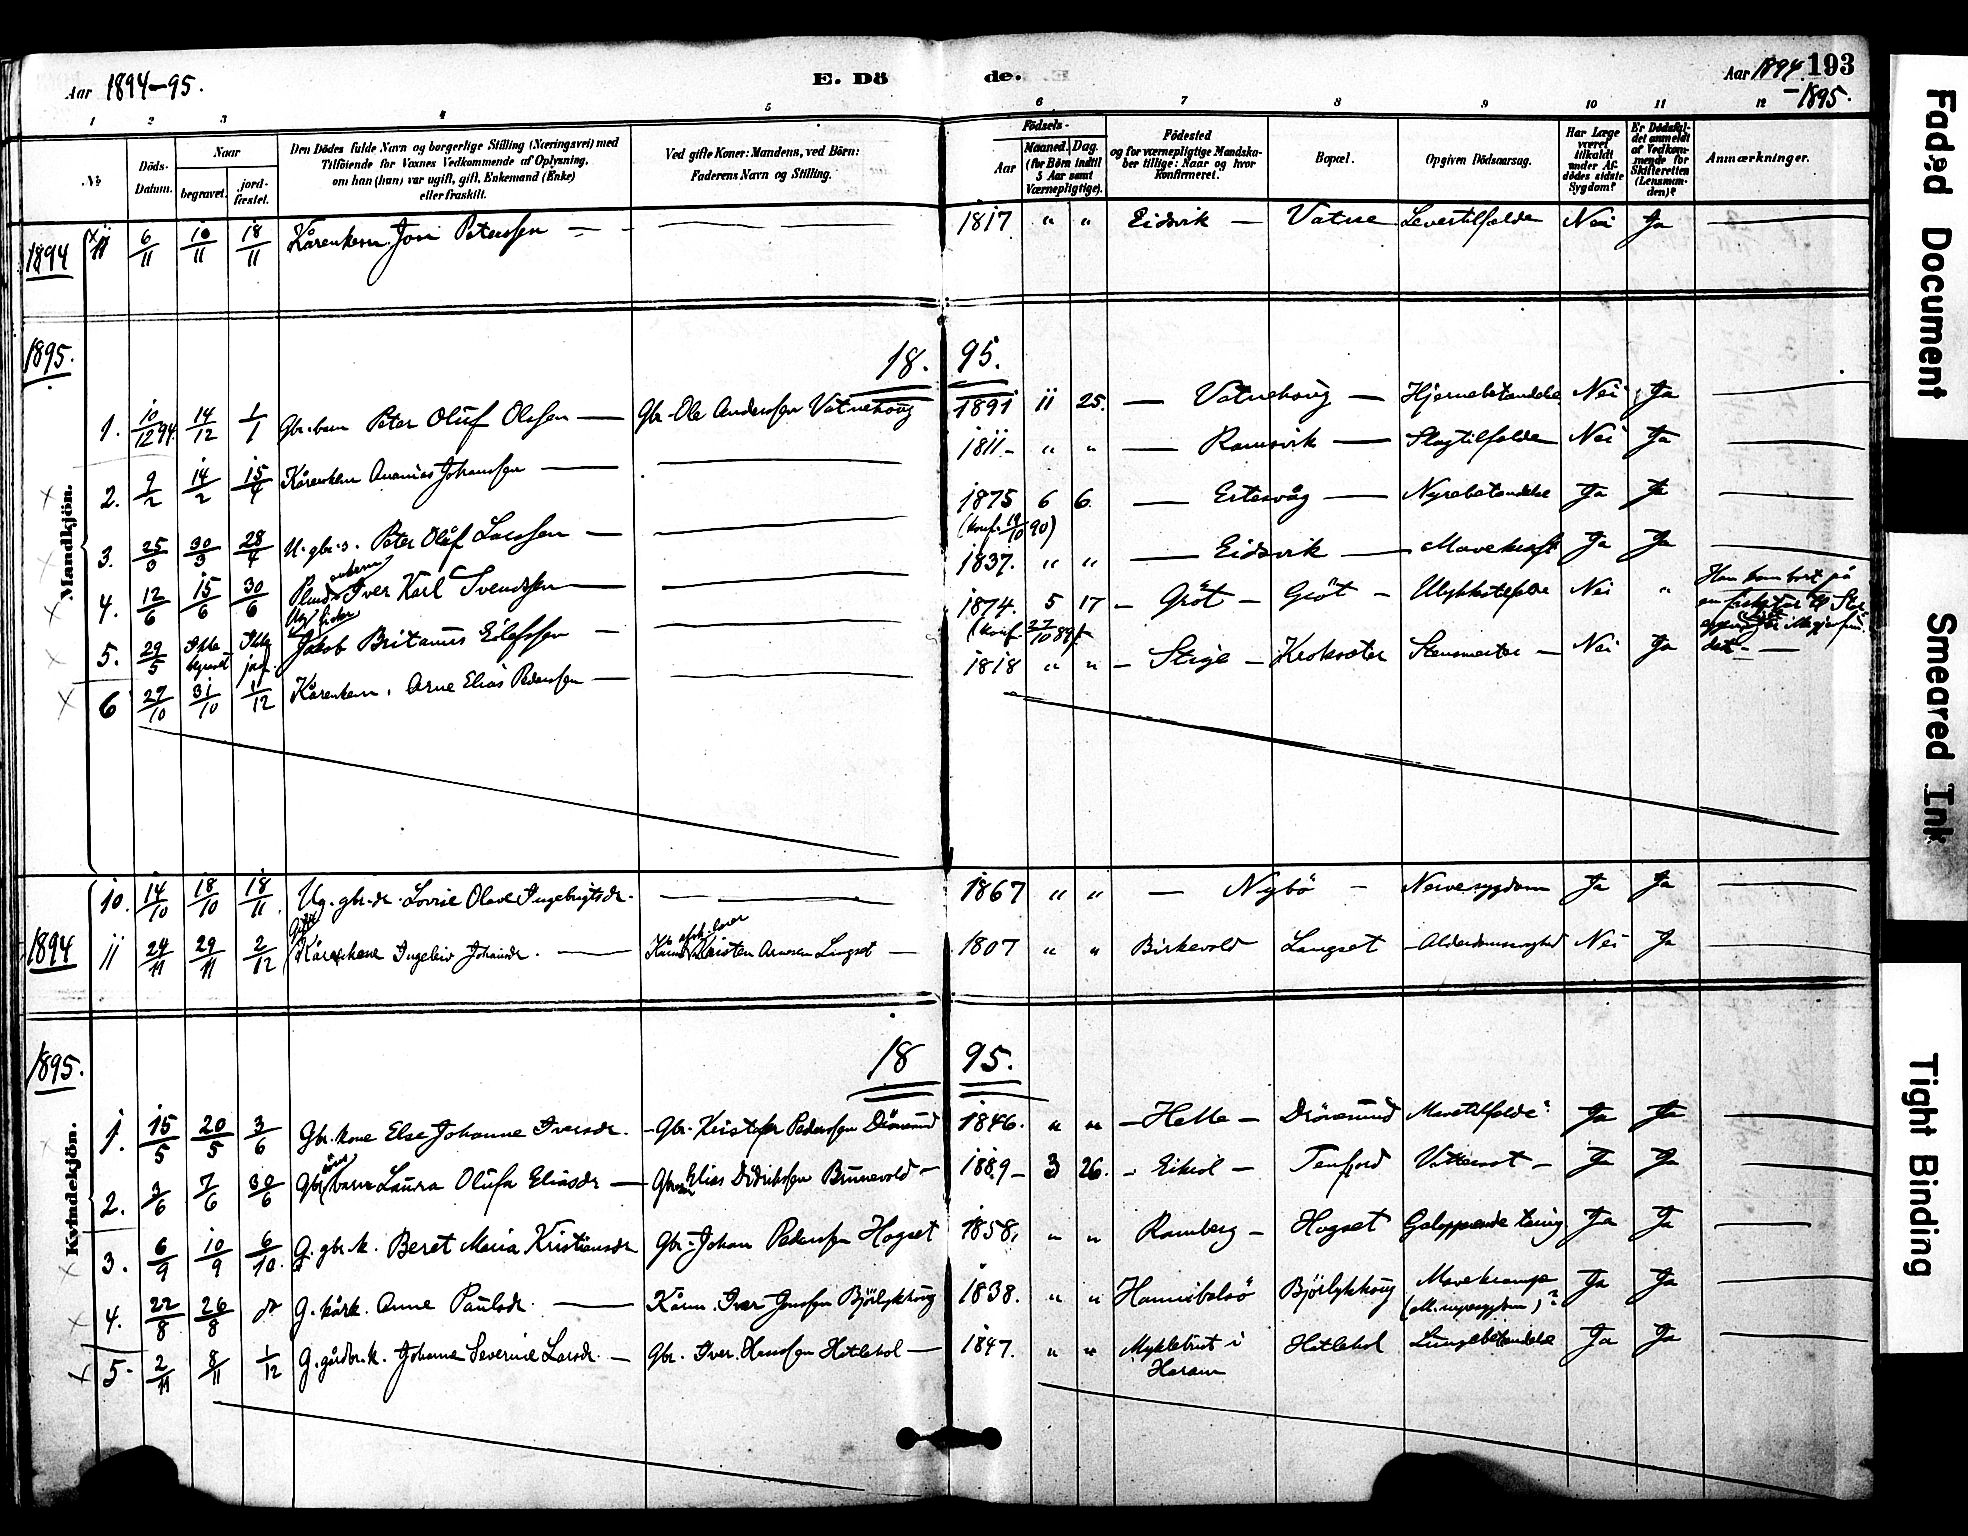 Aar 1894-95.
E. Dö de.
Aar 1894 193
-1895.
1 2 3 4 5 6 7 8 9 10 11 12
No
Döds-Datum.
Naar
begravet.
jord-fæstet.
Den Dödes fulde Navn og borgerlige Stilling (Næringsvei) med
Tilföiende for Voxnes Vedkommende af Oplysning,
om han (hun) var ugift, gift, Enkemand (Enke)
eller fraskilt.
Ved gifte Koner: Mandens, ved Börn:
Faderens Navn og Stilling.
Födsels-
Aar
Maaned. Dag.
(for Börn indtil
5 Aar samt
Værnepligtige).
Födested
og for værnepligtige Mandska-
ber tillige: Naar og hvor
Konfirmeret.
Bopæl.
Opgiven Dödsaarsag.
Har Læge
været
tilkaldt
under Af-
dödes sidste
Sygdom?
Er Dödsfal-
det anmeldt
af Vedkom-
mende for
Skifteretten
(Lensman-
den)?
Anmærkninger.
1894 11 6/11 10/11 18/11 Kårenkem. Jon Peterssen — 1817 " " Eidsvik — Vatne Levertilfælde Nei Ja
1895.
18. 95.
Mandkjön.
1. 10/12 94. 14/12 1/1 Gbr. barn Peter Oluf Olssen — Gbr. Ole Anderssen Vatnehoug 1891 11 25. — Vatnehoug — Hjernebetændelse Nei Ja
2. 9/2 14/2 15/4 Kårenkem Ananias Johanssen — 1811- " " — Ramsvik — Slagtilfælde Nei Ja
3. 25/3 30/3 28/4 U. gbr. s. Peter Oluf Larssen — 1875 6 6. — Ertesvåg — Nyrebetændelse Ja Ja
(konf. 19/10 90)
4. 12/6 15/6 30/6 Iver Karl Svendssen — 1837. " " — Eidsvik — Mavekræft Ja Ja
5. 29/5 Ikke begravet Ikke jordf. Ug. fisker Jakob Britanus Eilefssen — 1874. 5 17 — Gröt — Gröt — Ulykkestilfælde Nei "
(konf. 27/10 89)
Han kom bort på
en fisketur
6 27/10 31/10 1/12 Kårenkem. Arne Elias Pederssen — 1818 " " — Steje — Kroksæter Stensmerter — Nei Ja
1894
10. 14/10 18/10 18/11 Ug. gbr. dr. Lovise Olave Ingebrigtsdr. — 1867 " " — Nybö — Nervesygdom Ja Ja
11 24/11 29/11 2/12 Gift Kårenkone Ingeleiv Johansdr. — Kårm. Kristen Arnesen Langset — 1807 " " Birkevold Langset — Alderdomssvaghed Nei Ja
1895.
18 95.
Kvindekjön.
1. 15/5 20/5 3/6 Gbr. kone Else Johanne Iversdr. — Gbr. Kristofer Pederssen Drönesund 1846. " " — Helle — Drönesund Mavetilfælde Ja Ja
2. 3/6 7/6 30/6 Gbr. barn Laura Olufa Eliasdr — Elias Didrikssen Brunevold — 1889- 3 26. — Eikrol — Tenfjord Ja Ja
3. 6/9 10/9 6/10. G. gbr. k. Beret Maria Kristiansdr Gbr. Johan Pederssen Hogset 1858. " " Ramberg — Hogset Galoppende tæring Ja Ja
4. 22/8 26/8 G. kårk. Anne Paulsdr. — Kårm. Iver Jonssen Björlykhoug 1838. " " Hannibalsö Björlykhoug Mavekrampe Ja Ja
5. 2/11 8/11 1/12 G. gårdbr. k. Johanne Severine Larsdr. — Gbr. Iver Hanssen Hetlehol — 1847. " " Myklebust i Hetlehol Lungebetændelse Ja Ja
Haram
Faded Document
Smeared Ink
Tight Binding